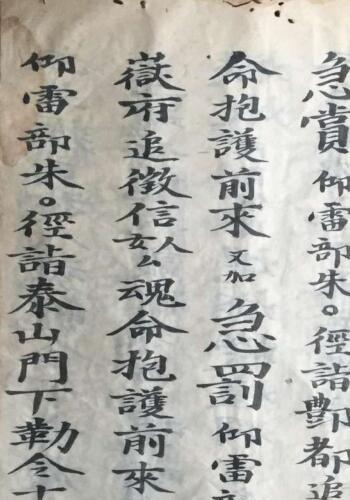 急賞仰雷部朱。徑詣酆都追
命抱護前來又加急罰仰雷
嶽府追徵信人女厶魂命抱護前來
仰雷部朱。徑詣泰山門下勒令